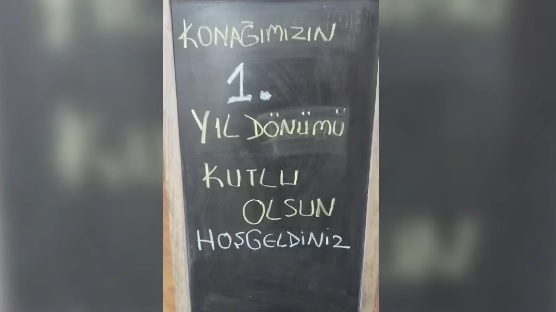 KONAĞIMIZIN
1.
YIL DÖNÜMÜ
KUTLU
OLSUN
HOŞGELDİNİZ